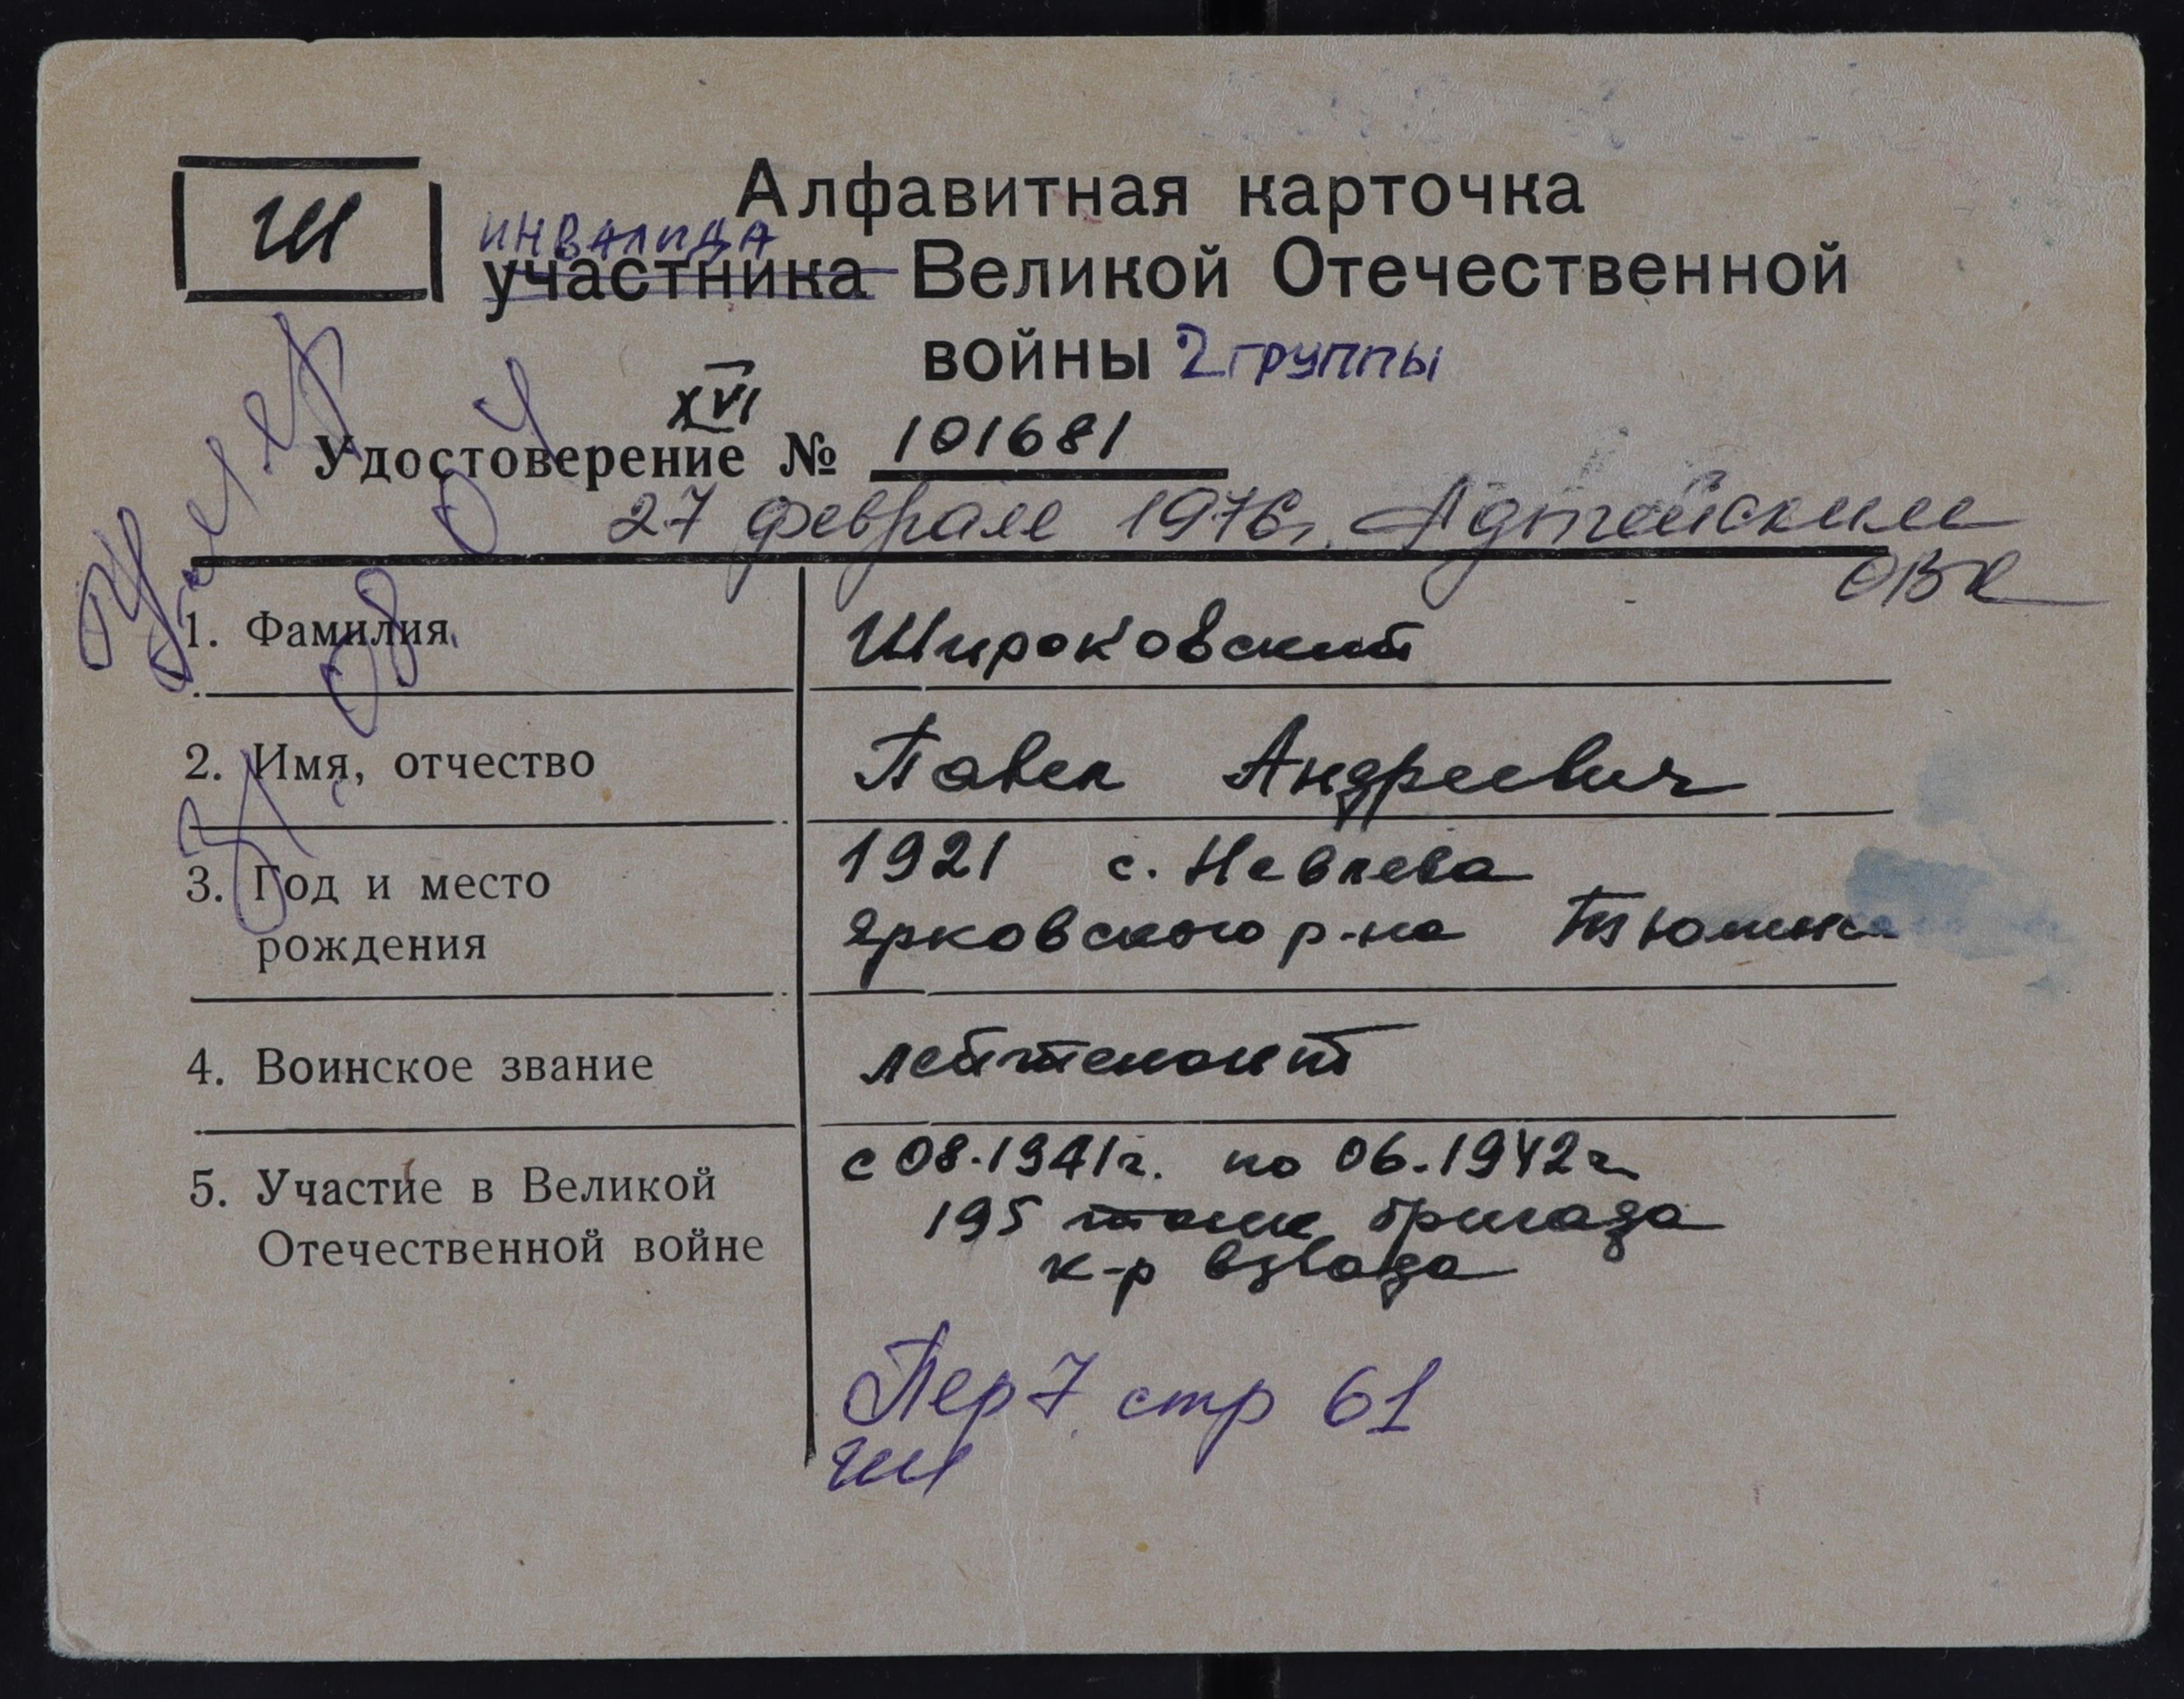 Ш
Алфавитная карточка
инвалида
участника Великой Отечественной
войны 2 группы
XVI
Удостоверение № 101681
27 февраля 1976г. Адыгейским
ОВК
1. Фамилия Широковский
2. Имя, отчество Павел Андреевич
3. Год и место 1921 с. Невлева
рождения Ярковского р-на Тюменск
4. Воинское звание лейтенант
5. Участие в Великой с 08.1941г. по 06.1942г
Отечественной войне 195 танк бригада
к-р взвода
Пер 7 стр 61
Ш